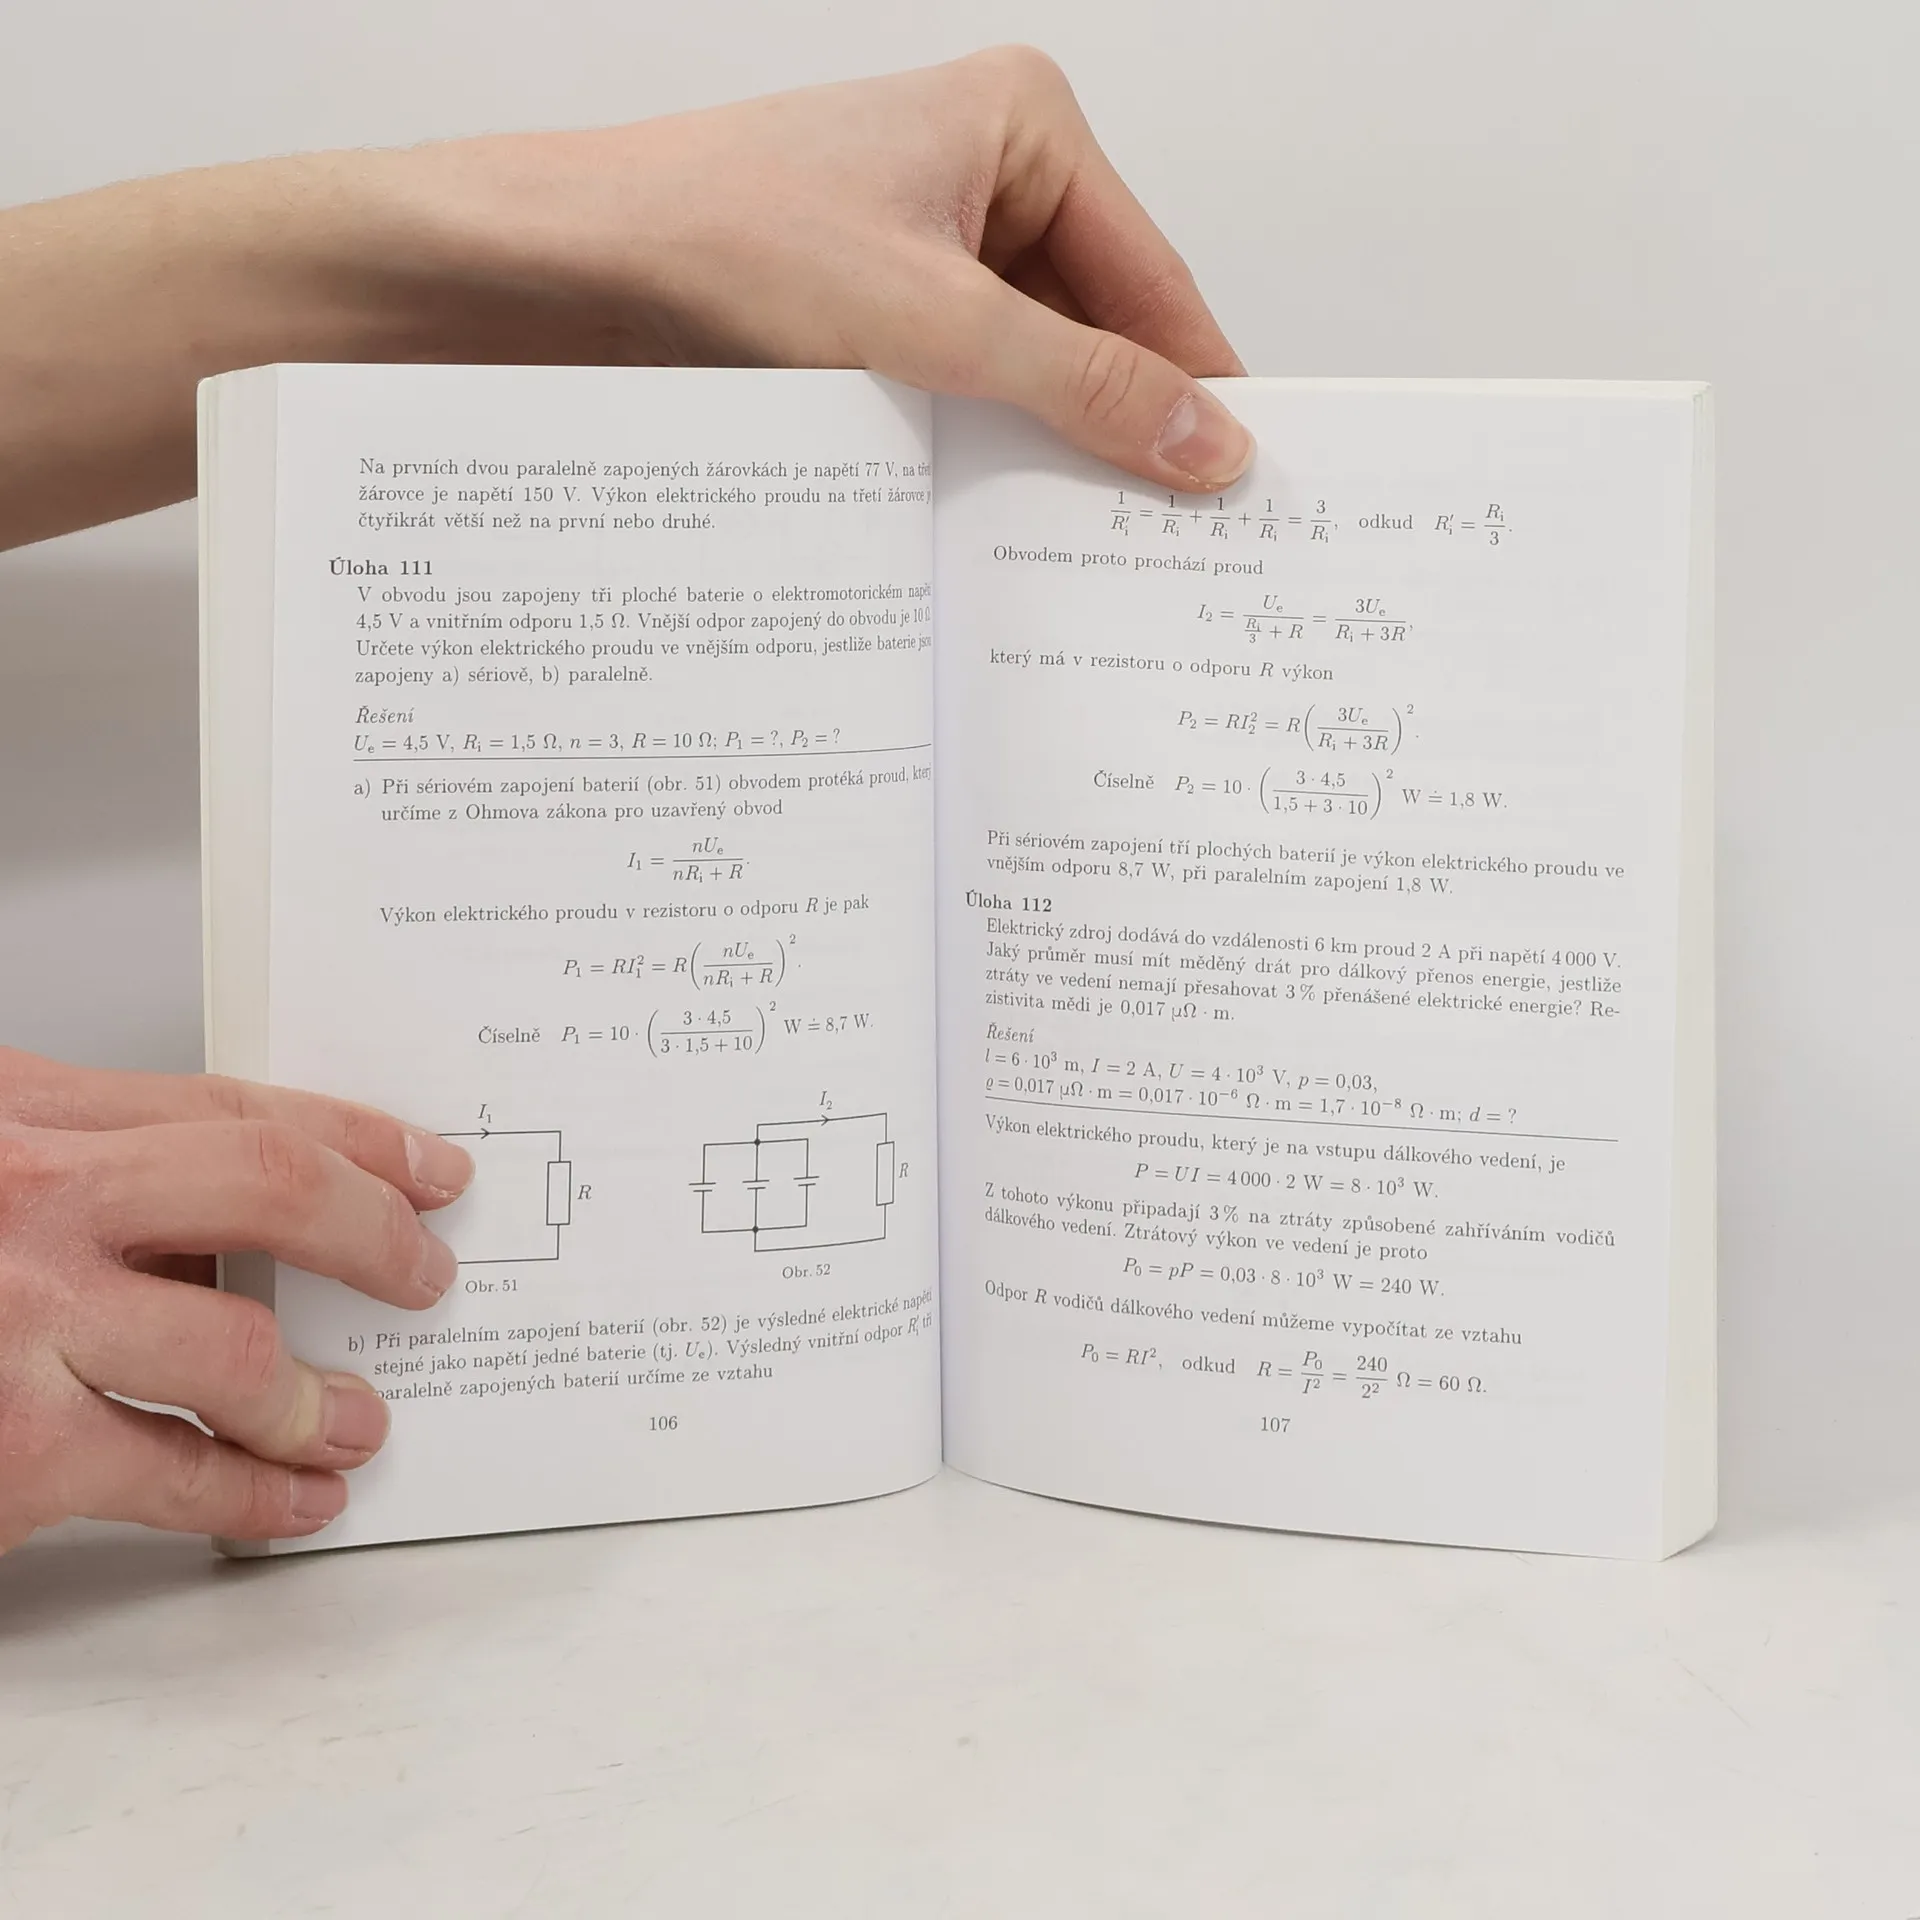 Na prvních dvou paralelně zapojených žárovkách je napětí 77 V, na
žárovce je napětí 150 V. Výkon elektrického proudu na třetí žárovce
čtyřikrát větší než na první nebo druhé.
Úloha 111
V obvodu jsou zapojeny tři ploché baterie o elektromotorickém
4,5 V a vnitřním odporu 1,5 Ω. Vnější odpor zapojený do obvodu je 10 Ω.
Určete výkon elektrického proudu ve vnějším odporu, jestliže baterie jsou
zapojeny a) sériově, b) paralelně.
Řešení
Uₑ = 4,5 V, Rᵢ = 1,5 Ω, n = 3, R = 10 Ω; P₁ = ?, P₂ = ?
a) Při sériovém zapojení baterií (obr. 51) obvodem protéká proud,
určíme z Ohmova zákona pro uzavřený obvod
I₁ = nUₑ / (nRᵢ + R).
Výkon elektrického proudu v rezistoru o odporu R je pak
P₁ = RI₁² = R(nUₑ / (nRᵢ + R))².
Číselně P₁ = 10 · (3 · 4,5 / (3 · 1,5 + 10))² W ≐ 8,7 W.
I₁
R
Obr. 51
I₂
R
Obr. 52
b) Při paralelním zapojení baterií (obr. 52) je výsledné elektrické napětí
stejné jako napětí jedné baterie (tj. Uₑ). Výsledný vnitřní odpor Rᵢ′ tří
paralelně zapojených baterií určíme ze vztahu
106
1/Rᵢ′ = 1/Rᵢ + 1/Rᵢ + 1/Rᵢ = 3/Rᵢ, odkud Rᵢ′ = Rᵢ/3.
Obvodem proto prochází proud
I₂ = Uₑ / (Rᵢ/3 + R) = 3Uₑ / (Rᵢ + 3R),
který má v rezistoru o odporu R výkon
P₂ = RI₂² = R(3Uₑ / (Rᵢ + 3R))².
Číselně P₂ = 10 · (3 · 4,5 / (1,5 + 3 · 10))² W ≐ 1,8 W.
Při sériovém zapojení tří plochých baterií je výkon elektrického proudu ve
vnějším odporu 8,7 W, při paralelním zapojení 1,8 W.
Úloha 112
Elektrický zdroj dodává do vzdálenosti 6 km proud 2 A při napětí 4 000 V.
Jaký průměr musí mít měděný drát pro dálkový přenos energie, jestliže
ztráty ve vedení nemají přesahovat 3 % přenášené elektrické energie? Re-
zistivita mědi je 0,017 μΩ · m.
Řešení
l = 6 · 10³ m, I = 2 A, U = 4 · 10³ V, p = 0,03,
ϱ = 0,017 μΩ · m = 0,017 · 10⁻⁶ Ω · m = 1,7 · 10⁻⁸ Ω · m; d = ?
Výkon elektrického proudu, který je na vstupu dálkového vedení, je
P = UI = 4 000 · 2 W = 8 · 10³ W.
Z tohoto výkonu připadají 3 % na ztráty způsobené zahříváním vodičů
dálkového vedení. Ztrátový výkon ve vedení je proto
P₀ = pP = 0,03 · 8 · 10³ W = 240 W.
Odpor R vodičů dálkového vedení můžeme vypočítat ze vztahu
P₀ = RI², odkud R = P₀/I² = 240/2² Ω = 60 Ω.
107